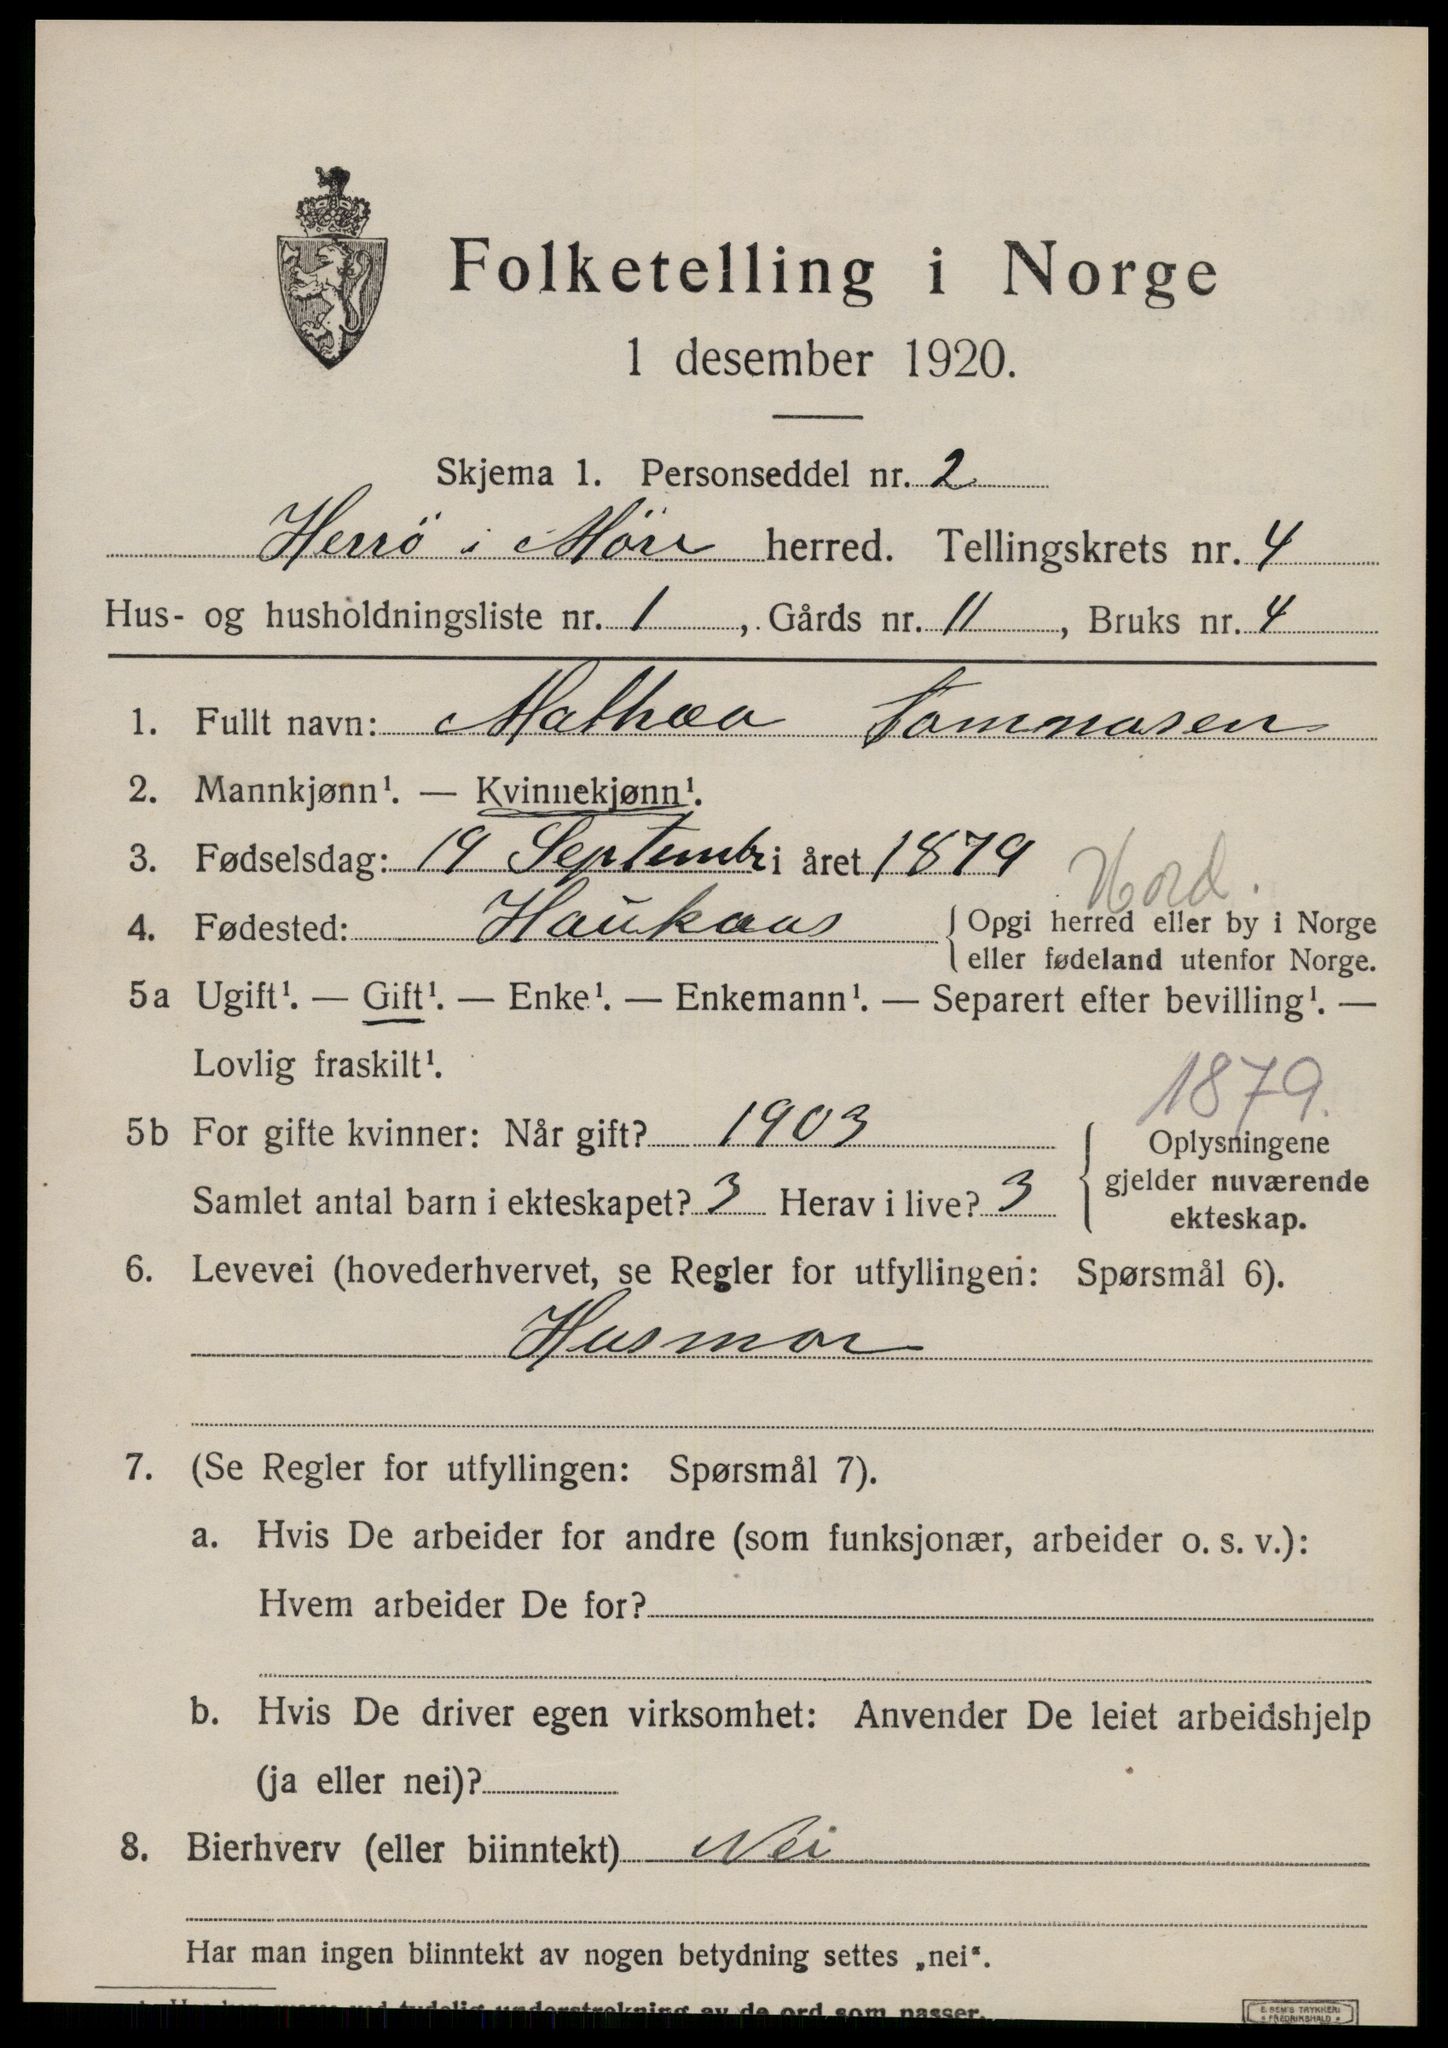 Folketelling i Norge
1 desember 1920.
Skjema 1. Personseddel nr. 2
Herrö i Möre herred. Tellingskrets nr. 4
Hus- og husholdningsliste nr. 1, Gårds nr. 11, Bruks nr. 4
1. Fullt navn: Mathea Tommasen
2. Mannkjønn¹. — Kvinnekjønn¹.
3. Fødselsdag: 19 Septembr i året 1879
Hord.
4. Fødested: Haukaas { Opgi herred eller by i Norge
eller fødeland utenfor Norge.
5a Ugift¹. — Gift¹. — Enke¹. — Enkemann¹. — Separert efter bevilling¹. —
Lovlig fraskilt¹.
1879.
5b For gifte kvinner: Når gift? 1903
Samlet antal barn i ekteskapet? 3 Herav i live? 3
Oplysningene
gjelder nuværende
ekteskap.
6. Levevei (hovederhvervet, se Regler for utfyllingen: Spørsmål 6).
Husmor
7. (Se Regler for utfyllingen: Spørsmål 7).
a. Hvis De arbeider for andre (som funksjonær, arbeider o. s. v.):
Hvem arbeider De for?
b. Hvis De driver egen virksomhet: Anvender De leiet arbeidshjelp
(ja eller nei)?
8. Bierhverv (eller biinntekt) Nei
Har man ingen biinntekt av nogen betydning settes „nei“.
tydelig understrekning av de ord som passer.
E. SEM'S TRYKKERI
FREDRIKSHALD